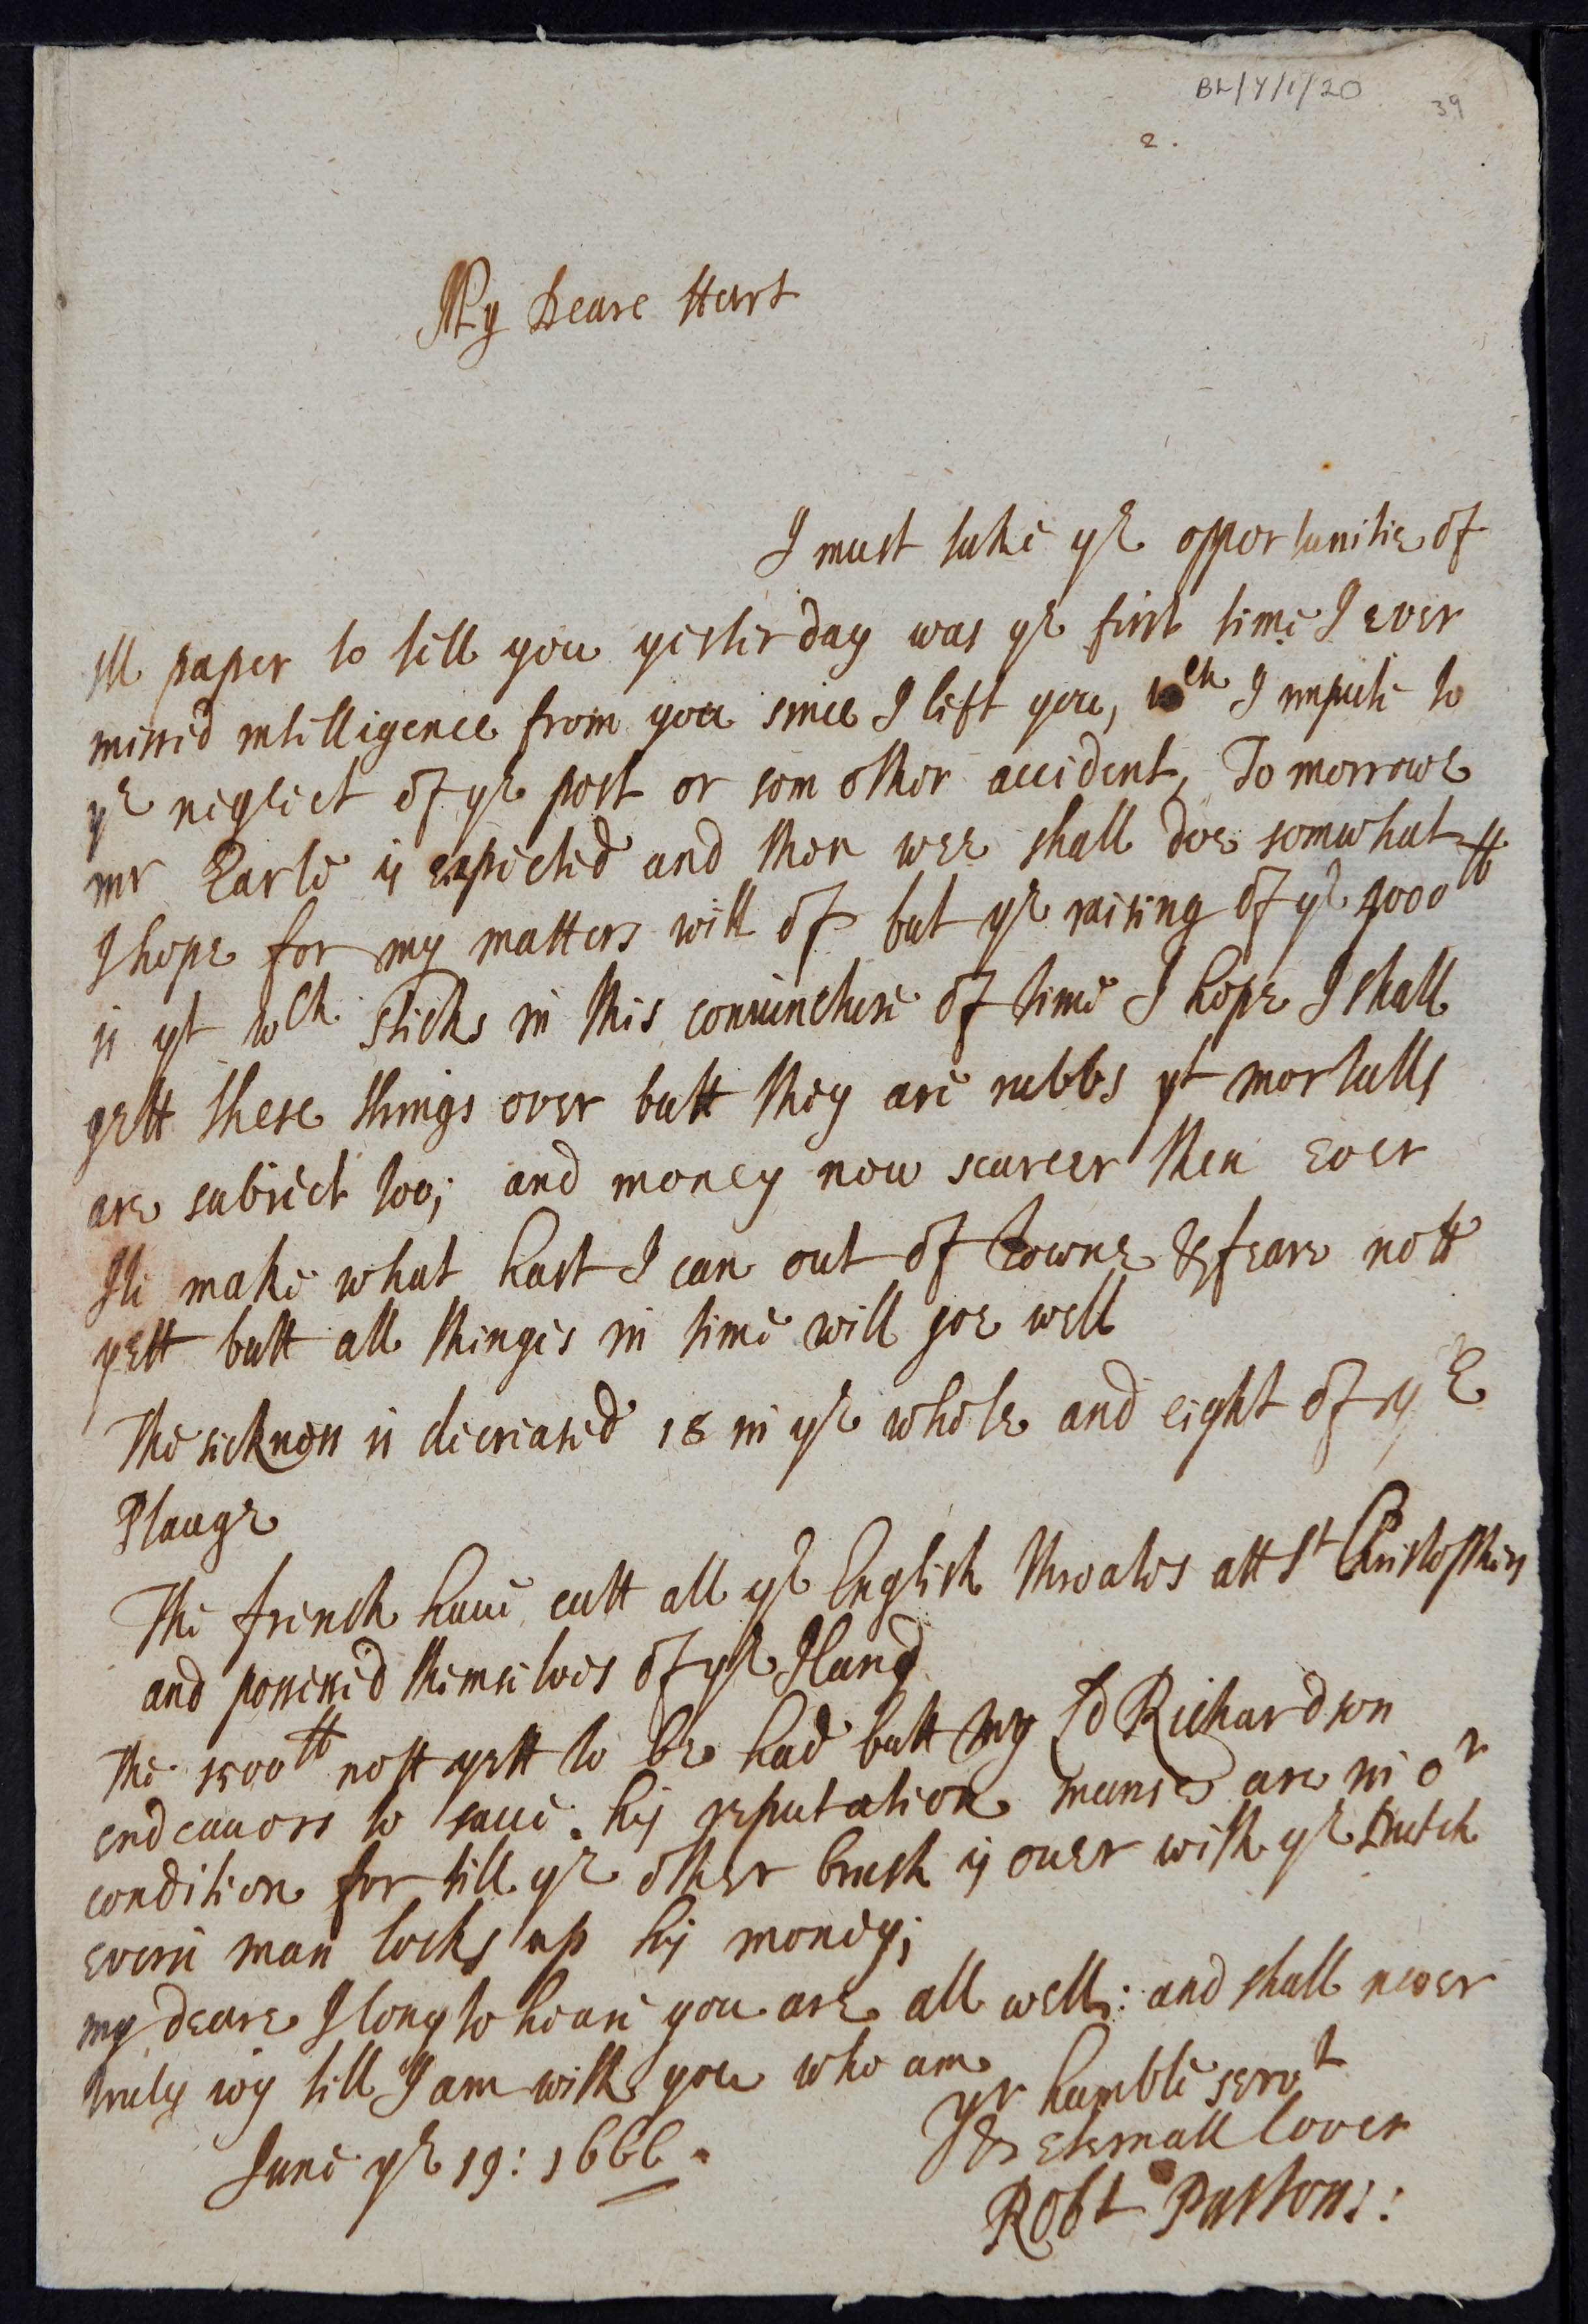 BL/Y/1/20
39
2.
My Deare Hart
I must take ye opportunitie of
ill paper to tell you yesterday was ye first time I ever
missed intelligence from you since I left you, wch I impute to
ye neglect of ye post or som other accident, To morrowe
mr Earle is expected and then wee shall doe somwhat
I hope for my matters will of but ye raising of ye 4000ll
is yt wch sticks in this coniuncture of time I hope I shall
gett these things over butt they are rubbs yt mortalls
are subiect too; and money now scarcer then ever
Ile make what hast I can out of Towne & feare nott
yett butt all thinges in time will goe well
The sicknes is decreased 18 in ye whole and eight of ye
Plauge
The french haue cutt all ye English throates att St Christophers
and possessed themselves of ye Iland
The 1500ll nott yett to be had butt my Ld Richardson
endeauors to saue his reputation manse are in or
condition for till ye other brush is ouer with ye Dutch
everie man locks up his money;
my deare I long to heare you are all well: and shall never
truly ioy till I am with you who am
Yr humble servt
& eternall lover
June ye 19: 1666.
Robt Paston: